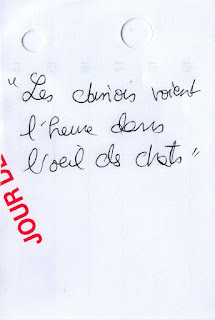 "Les chinois voient
l'heure dans
l'oeil de chats"
JOUR DE